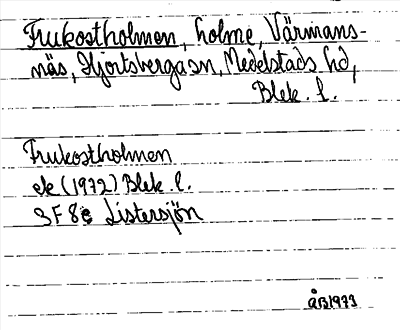 Frukostholmen, holme, Värmans-
näs, Hjortsbergasn, Medelstads hd,
Blek. l.
Frukostholmen
ek (1972) Blek. l.
3F 8e Listersjön
ÅB1973